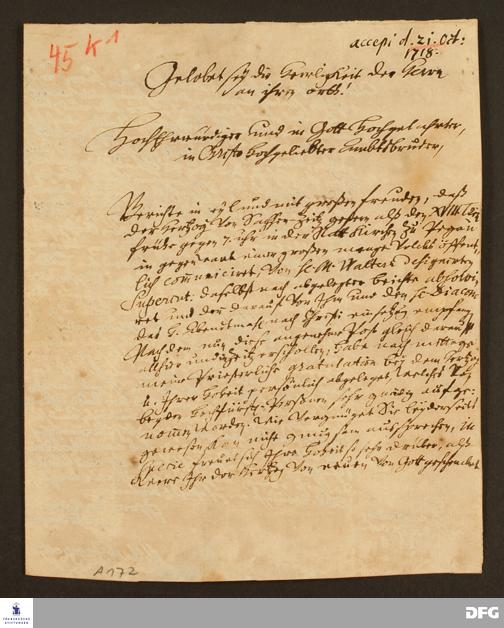 45 k 1
accepi d. 21. Oct:
1718.
Gelobet sey die Herrligkeit des Herrn
an ihrem orth!
Hochehrwürdiger und in Gott Hochgelahrter,
in Christo Hochgeliebter Ambtsbruder,
Berichte in eyl und mit großen freuden, daß
der Hertzog von Sachsen Zeitz gestern alß den XVIII
frühe gegen 7. uhr in der Kirchen zu Pegau
in gegenwart einer großen menge Volcks öffent-
lich communiciret, von H. M. Waltern designirten
Superint. daselbst nach abgelegter beichte absolvi-
ret und der darauf von Ihm und dem H. Diacon
das H. Abendmahl nach Christi einsetzung empfangen.
Nachdem nun diese angenehme Post gleich darauf
alhier erschollen, habe nach mittags
meine Priesterliche gratulation bey dem Hertzog
u. Ihrer Hoheit persönlich abgeleget, welche von
beyden Personen sehr gnädig aufge-
nommen worden. Wie vergnüget Sie beyderseits
gewesen, kan nicht gnugsam aussprechen, In
specie freuet sich Ihre Hoheit so sehr drüber, alß
wenn Ihr der Hertzog von neuen von Gott geschencket
A 172
FRANCKESCHE
STIFTUNGEN
DFG